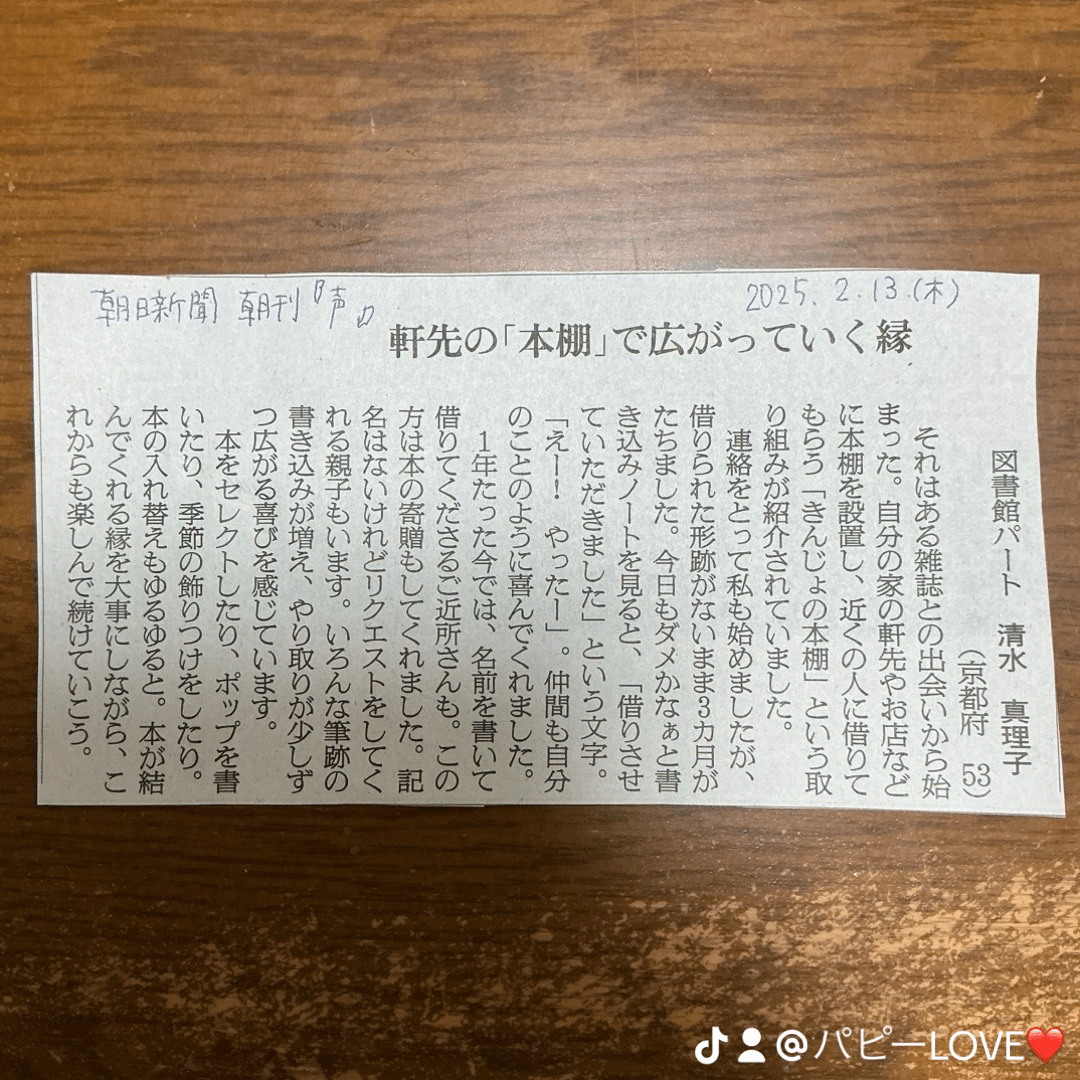 朝日新聞 朝刊『声』
2025.2.13.(木)
軒先の「本棚」で広がっていく縁
図書館パート 清水 真理子
(京都府 53)
それはある雑誌との出会いから始
まった。自分の家の軒先やお店など
に本棚を設置し、近くの人に借りて
もらう「きんじょの本棚」という取
り組みが紹介されていました。
連絡をとって私も始めましたが、
借りられた形跡がないまま3カ月が
たちました。今日もダメかなぁと書
き込みノートを見ると、「借りさせ
ていただきました」という文字。
「えー! やったー」。仲間も自分
のことのように喜んでくれました。
1年たった今では、名前を書いて
借りてくださるご近所さんも。この
方は本の寄贈もしてくれました。記
名はないけれどリクエストをしてく
れる親子もいます。いろんな筆跡の
書き込みが増え、やり取りが少しず
つ広がる喜びを感じています。
本をセレクトしたり、ポップを書
いたり、季節の飾りつけをしたり。
本の入れ替えもゆるゆると。本が結
んでくれる縁を大事にしながら、こ
れからも楽しんで続けていこう。
@パピーLOVE❤️